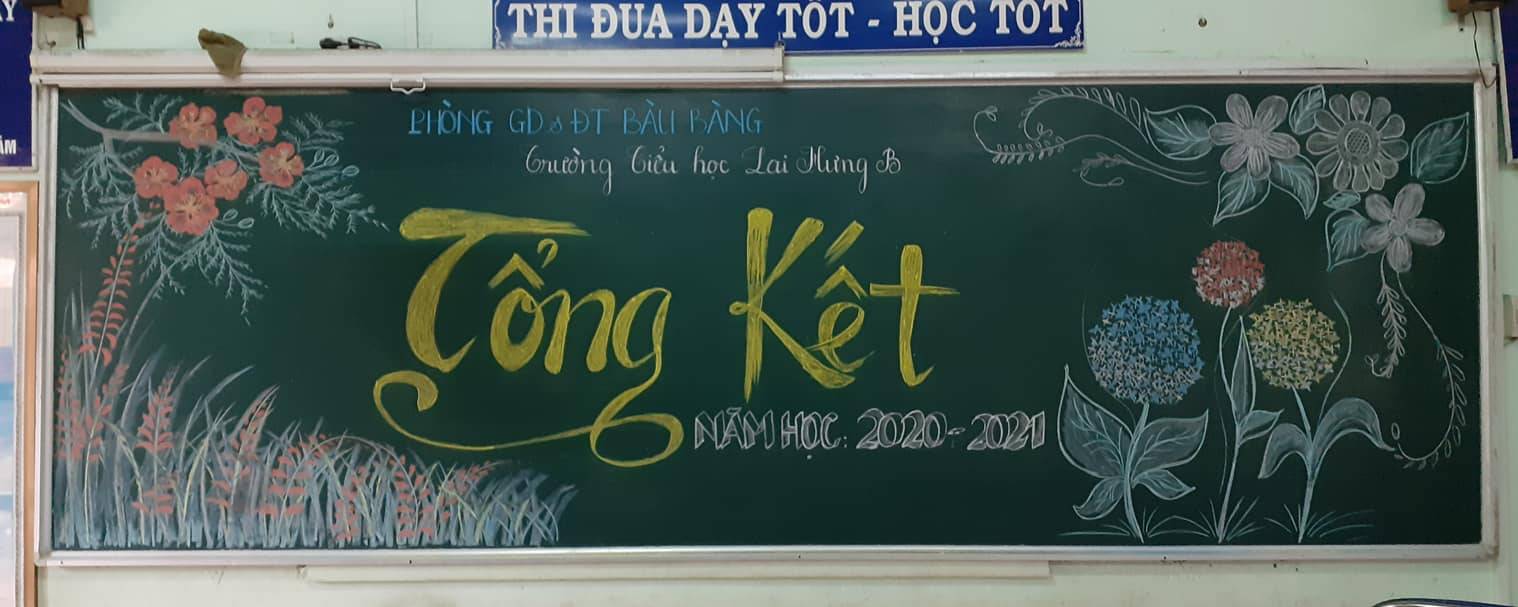 THI ĐUA DẠY TỐT - HỌC TỐT
PHÒNG GD & ĐT BÀU BÀNG
Trường Tiểu học Lai Hưng B
Tổng Kết
NĂM HỌC: 2020 - 2021